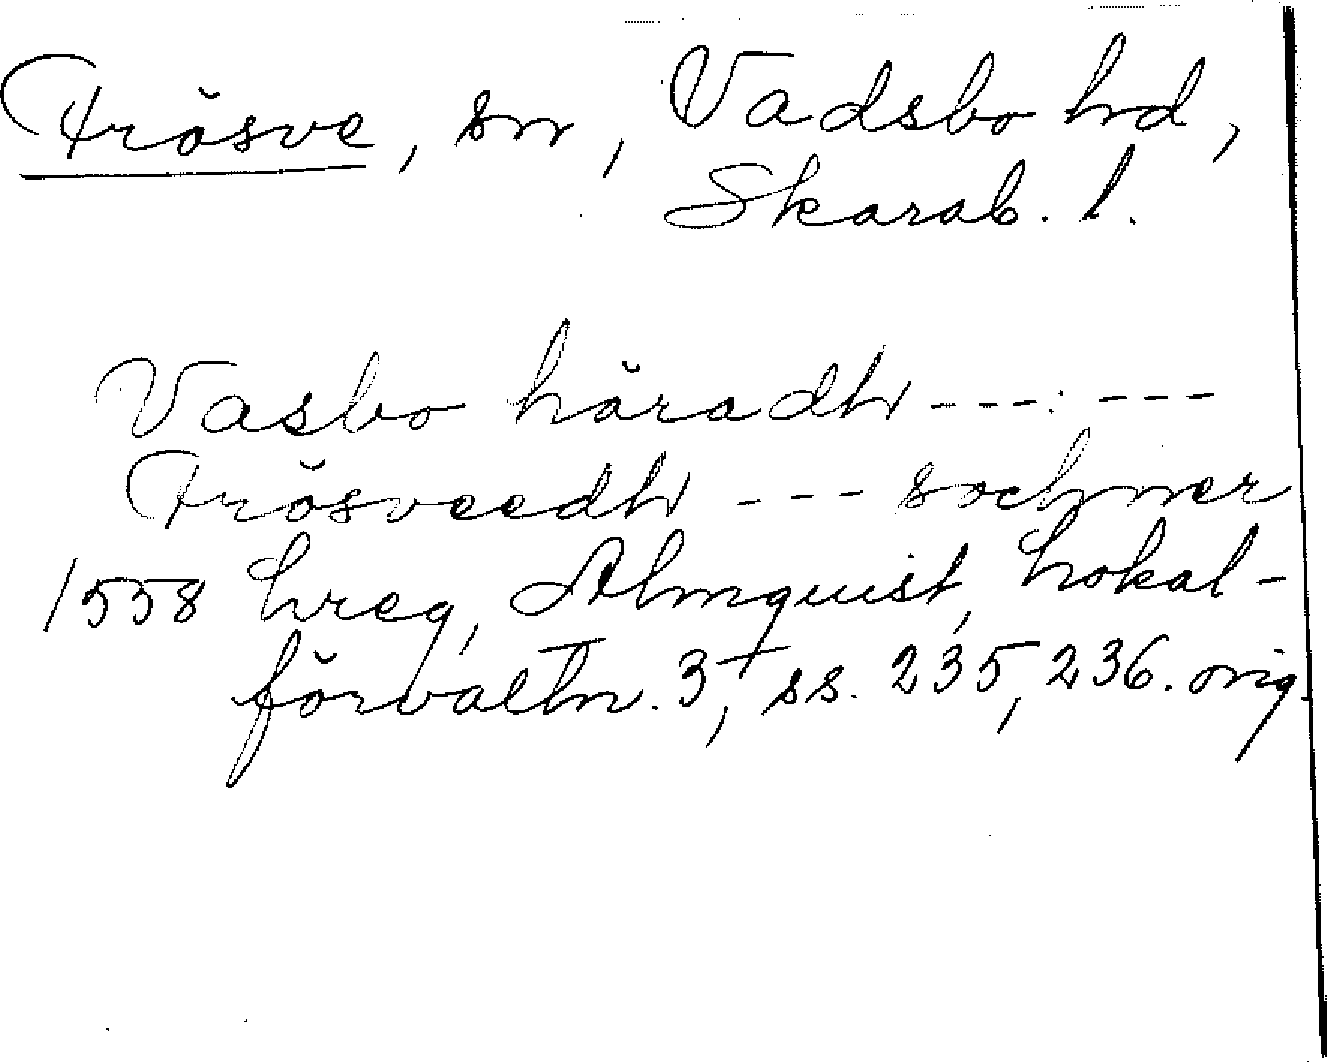 Frösve, sn, Vadsbo hd,
Skarab. l.
Vasbo häradh ---:---
Frösveedh --- sochner
1558 hreg, Almquist, Lokal-
förvaltn. 3, ss. 235, 236. orig.